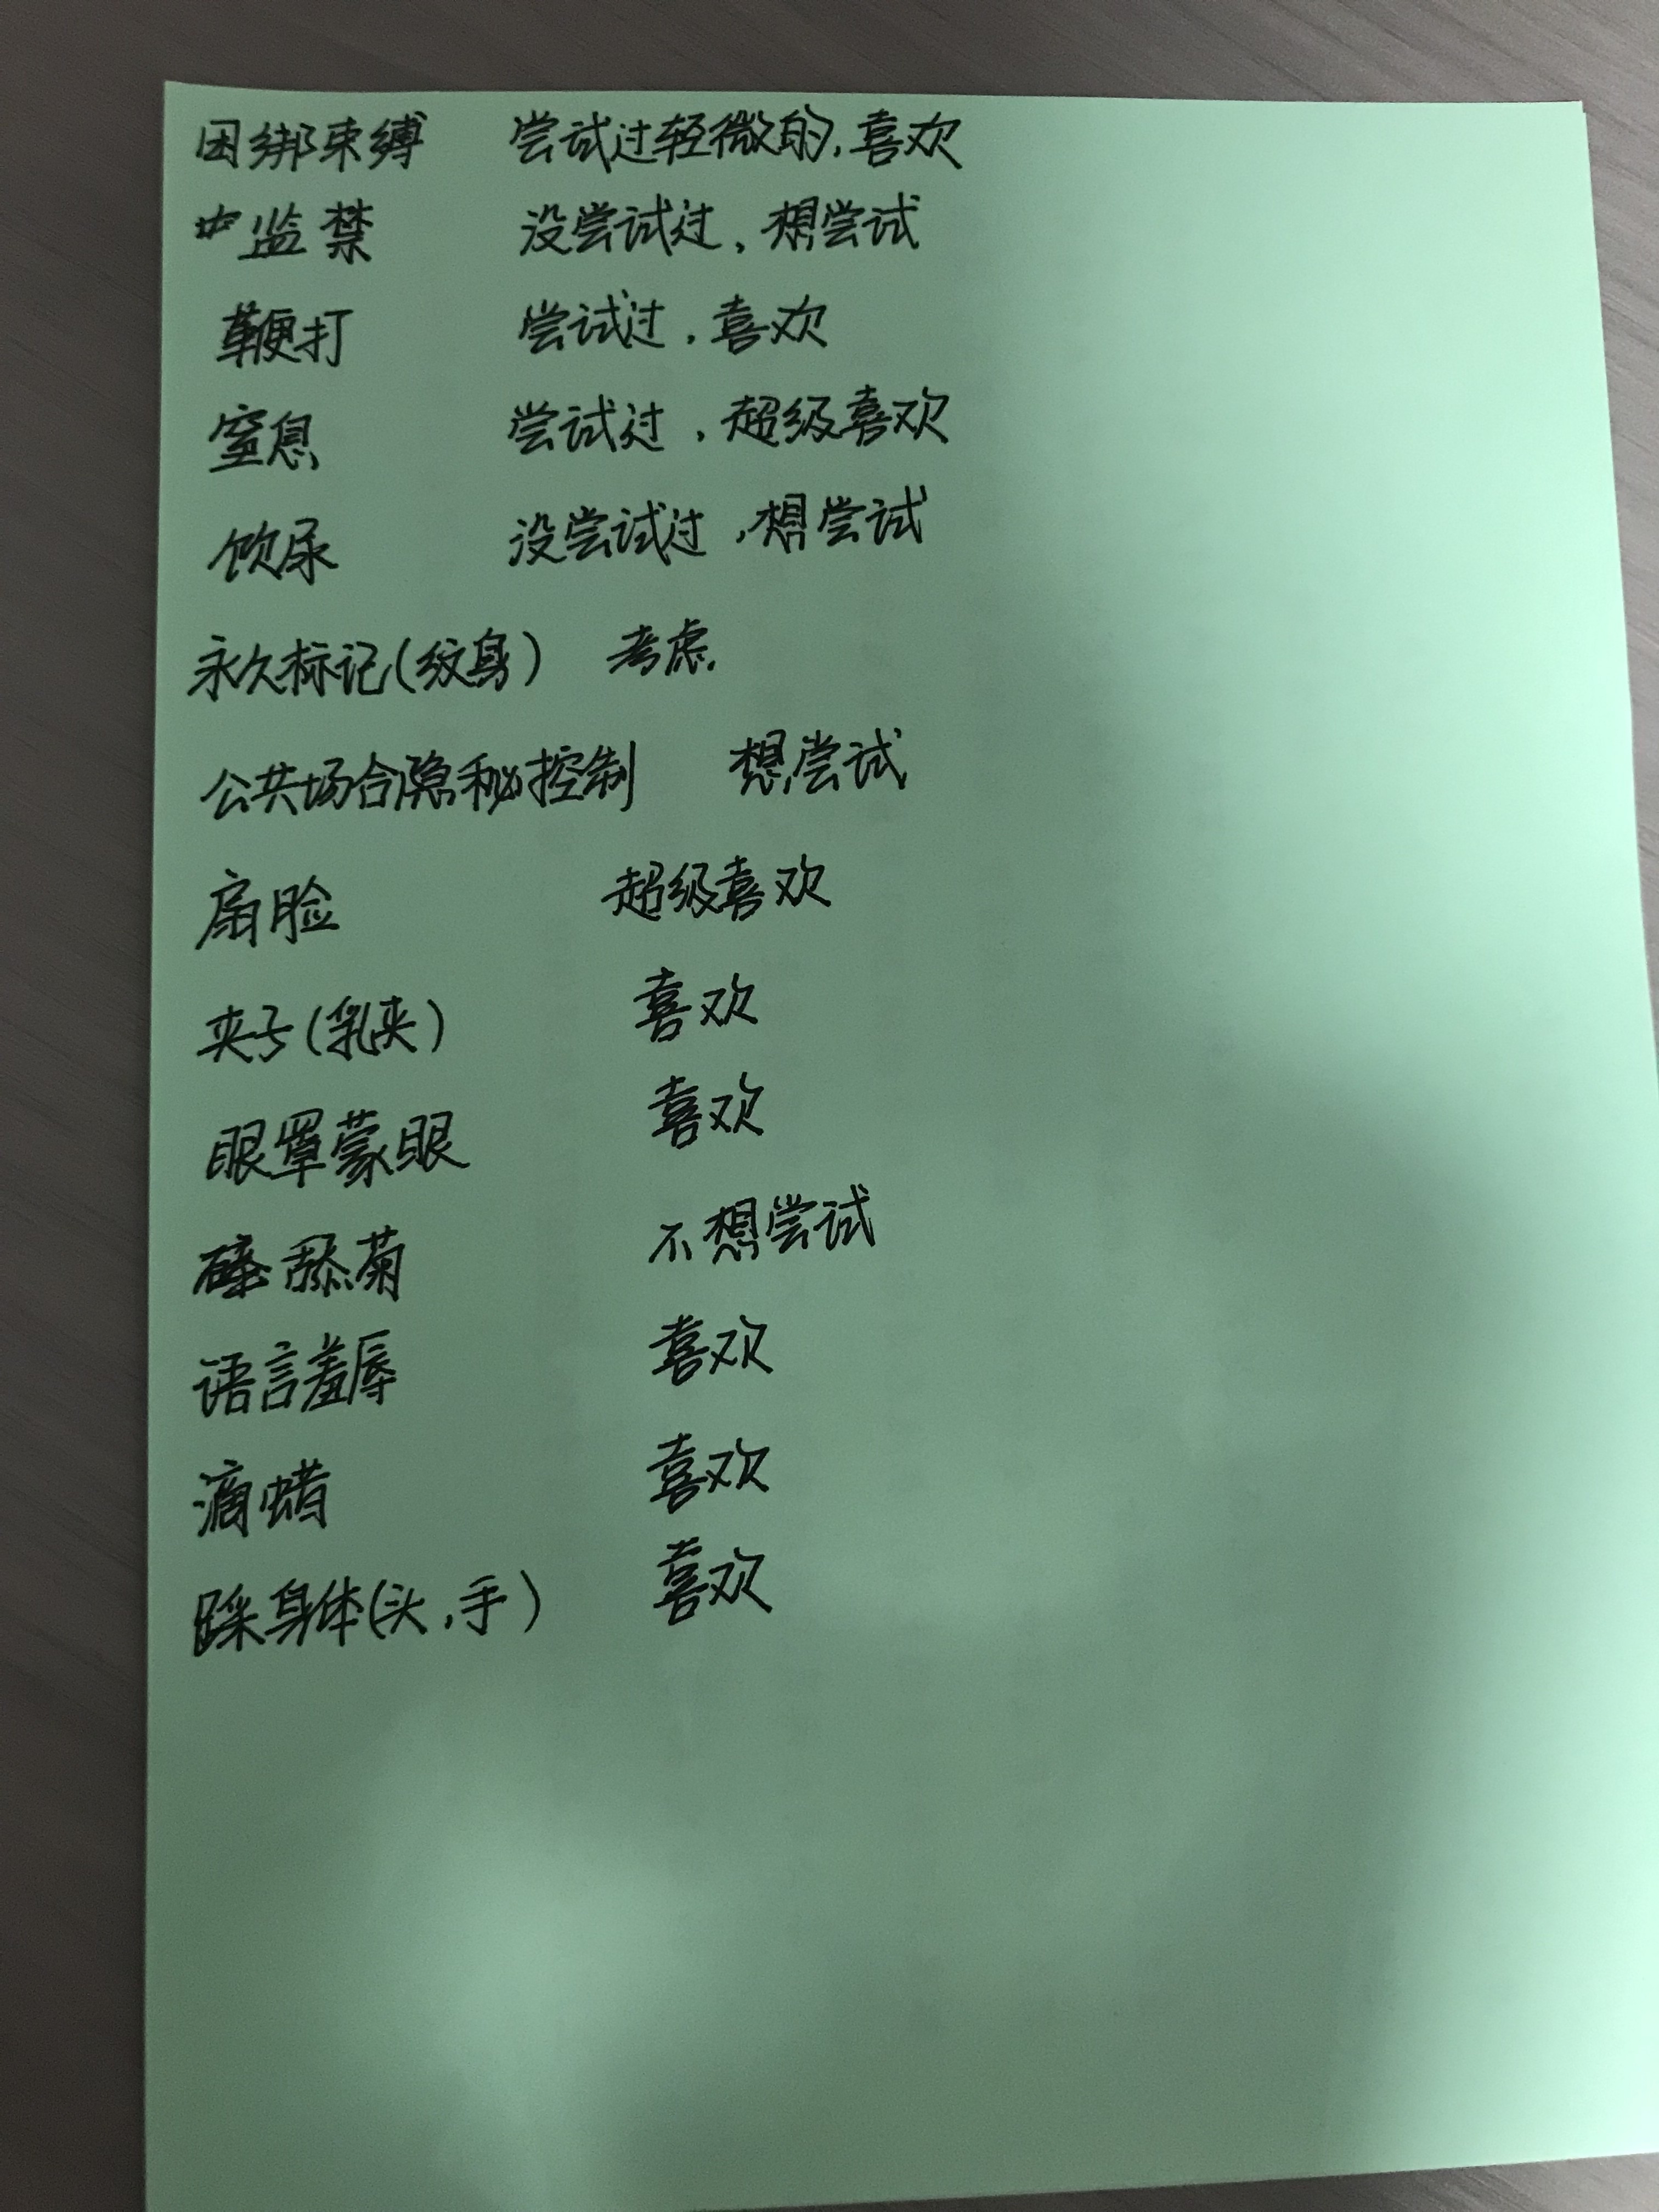 困绑束缚 尝试过轻微的,喜欢
监禁 没尝试过,想尝试
鞭打 尝试过,喜欢
窒息 尝试过,超级喜欢
饮尿 没尝试过,想尝试
永久标记(纹身) 考虑
公共场合隐秘控制 想尝试
扇脸 超级喜欢
夹子(乳夹) 喜欢
眼罩蒙眼 喜欢
舔菊 不想尝试
语言羞辱 喜欢
滴蜡 喜欢
踩身体(头,手) 喜欢